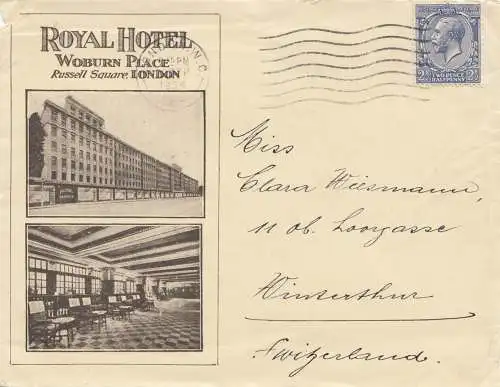 ROYAL HOTEL
WOBURN PLACE
Russell Square LONDON
TWO PENCE
HALFPENNY
Miss
Clara Wiesmann,
11 ob. Loorgasse
Winterthur
Switzerland.